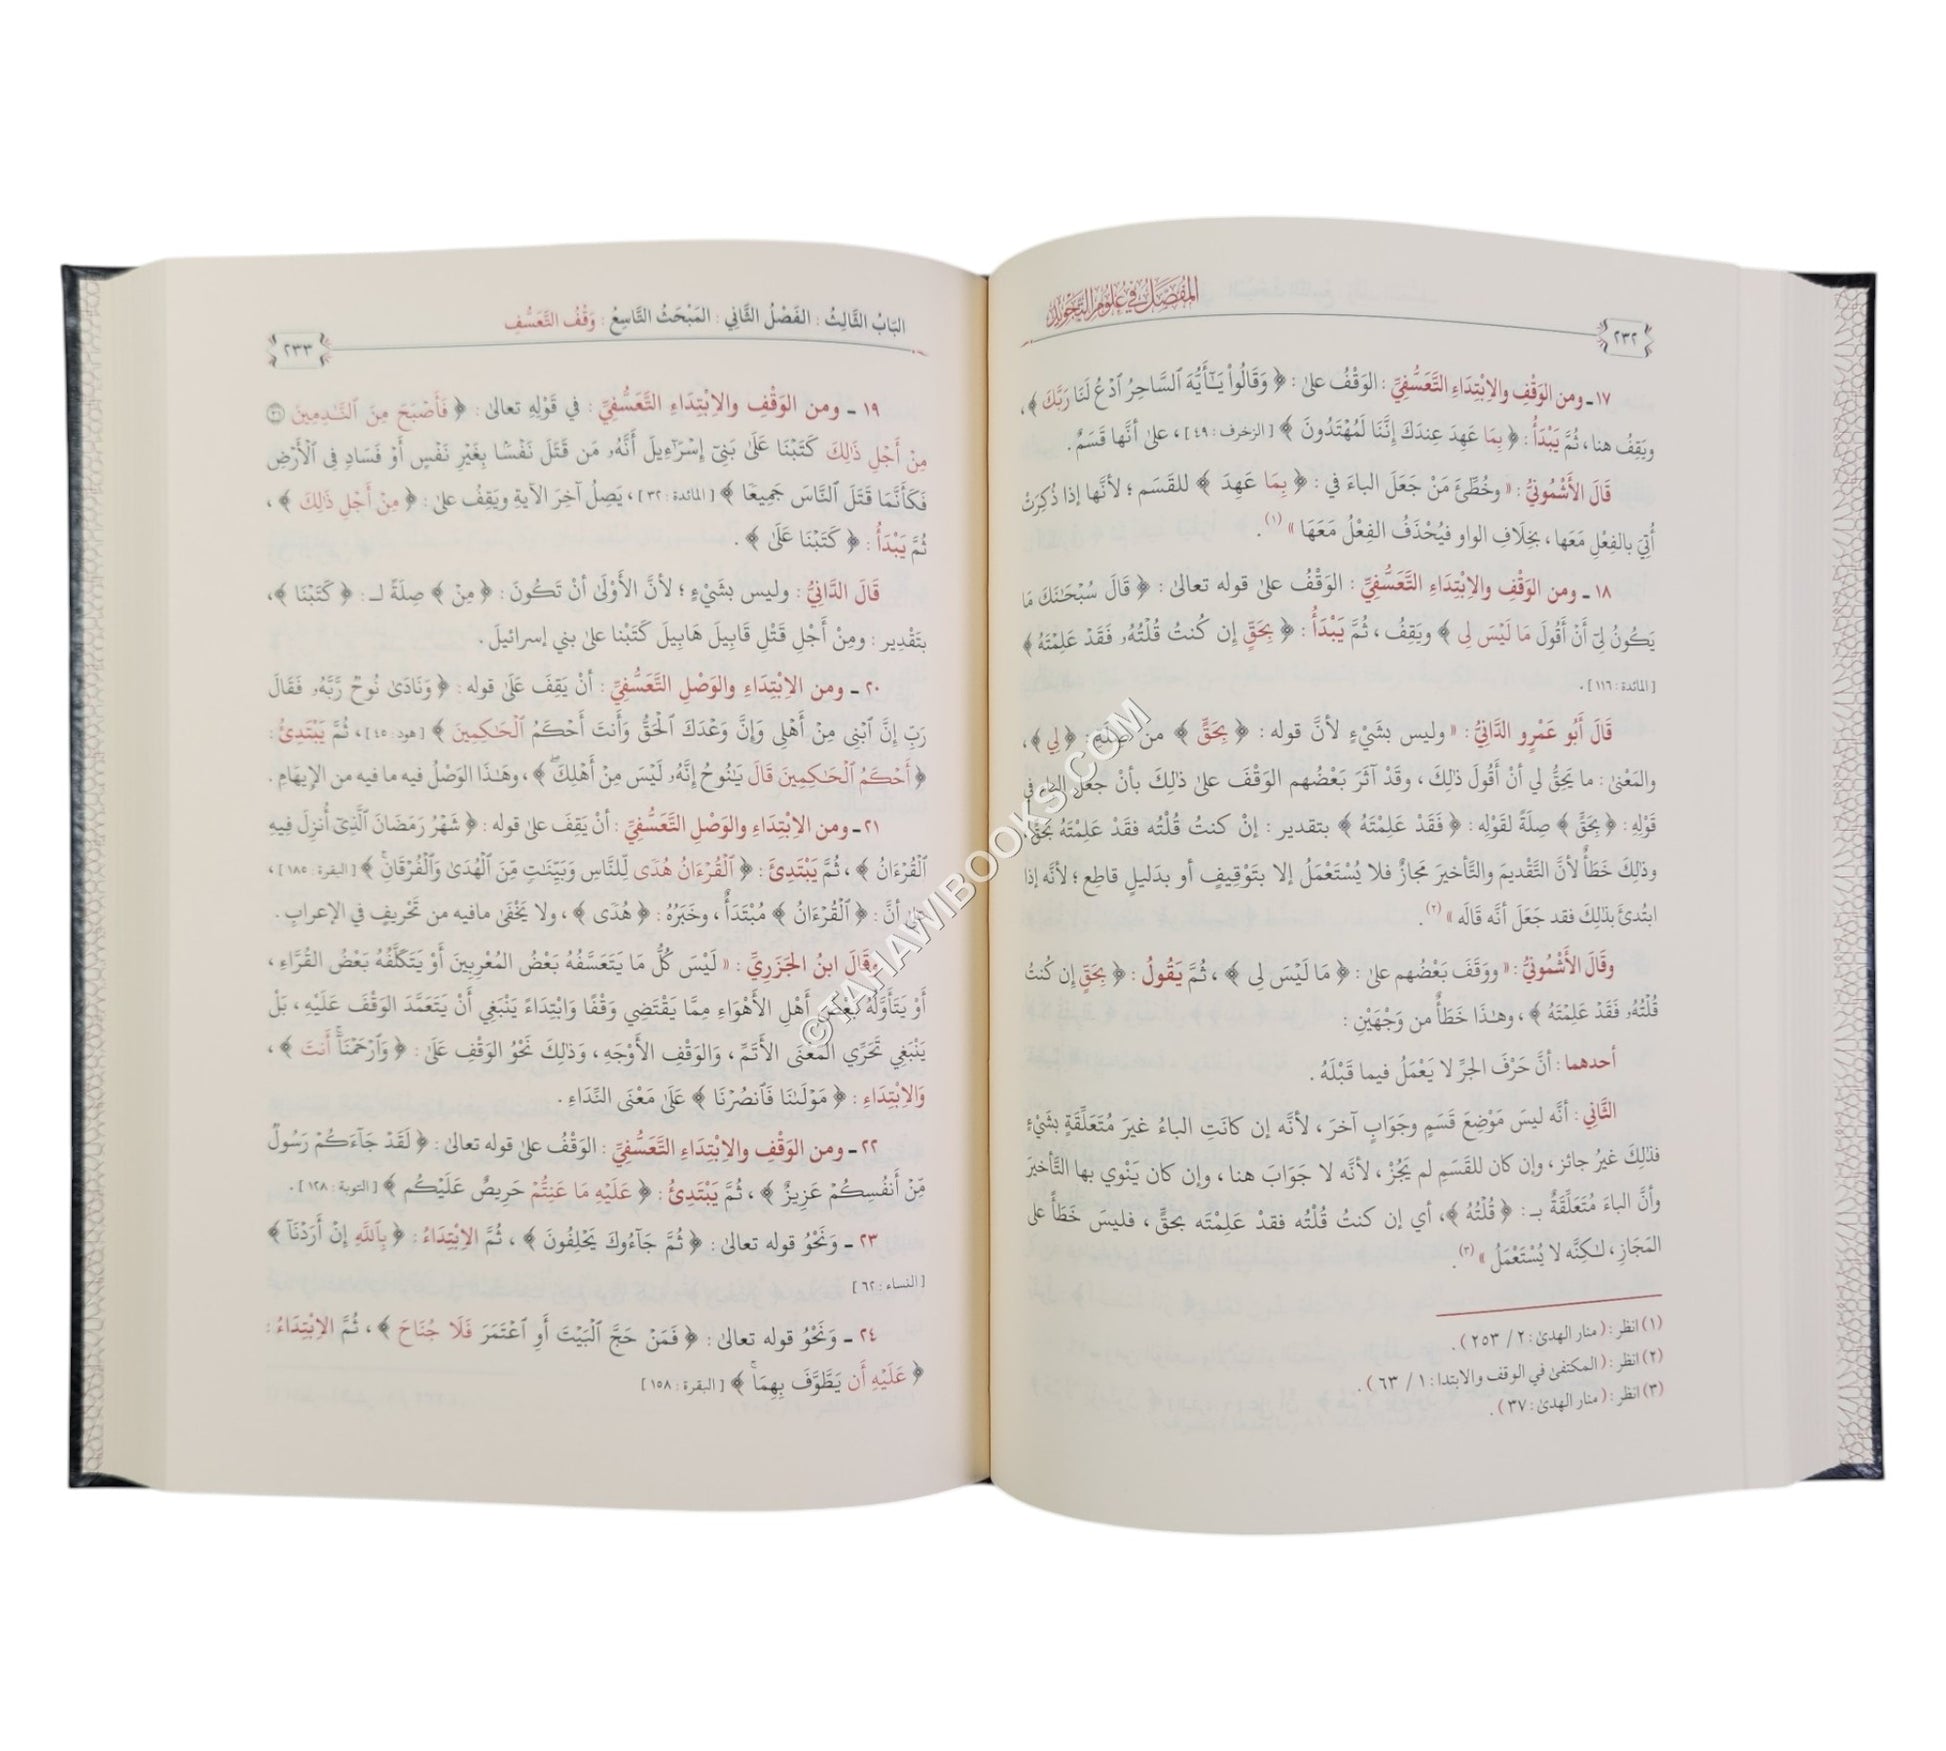 المُفَصَّلُ في عُلُومِ التَّجْوِيدِ
٢٣٢
١٧ ـ ومن الوَقْفِ والاِبْتِدَاءِ التَّعَسُّفِيِّ : الوَقْفُ علىٰ : ﴿ وَقَالُوا۟ يَـٰٓأَيُّهَ ٱلسَّاحِرُ ٱدْعُ لَنَا رَبَّكَ ﴾ ،
ويَقِفُ هنا ، ثُمَّ يَبْدَأُ : ﴿ بِمَا عَهِدَ عِندَكَ إِنَّنَا لَمُهْتَدُونَ ﴾ [ الزخرف : ٤٩ ] ، علىٰ أنَّها قَسَمٌ .
قَالَ الأَشْمُونِيُّ : « وخُطِّئَ مَنْ جَعَلَ الباءَ في : ﴿ بِمَا عَهِدَ ﴾ للقَسَم ؛ لأنَّها إذا ذُكِرَتْ
أُتِيَ بالفِعْلِ مَعَها ، بخِلَافِ الواو فيُحْذَفُ الفِعْلُ مَعَهَا » (١) .
١٨ ـ ومن الوَقْفِ والاِبْتِدَاءِ التَّعَسُّفِيِّ : الوَقْفُ علىٰ قوله تعالىٰ : ﴿ قَالَ سُبْحَـٰنَكَ مَا
يَكُونُ لِىٓ أَنْ أَقُولَ مَا لَيْسَ لِى ﴾ ويَقِفُ ، ثُمَّ يَبْدَأُ : ﴿ بِحَقٍّ إِن كُنتُ قُلْتُهُۥ فَقَدْ عَلِمْتَهُۥ ﴾
[ المائدة : ١١٦ ] .
قَالَ أَبُو عَمْرٍو الدَّانِيُّ : « وليس بشَيْءٍ لأنَّ قوله : ﴿ بِحَقٍّ ﴾ من صِلَةِ : ﴿ لِي ﴾ ،
والمَعْنىٰ : ما يَحِقُّ لي أنْ أَقُولَ ذٰلِكَ ، وقَدْ آثَرَ بَعْضُهم الوَقْفَ علىٰ ذٰلِكَ بأنْ جعَلَ الباء في
قَوْلِهِ : ﴿ بِحَقٍّ ﴾ صِلَةً لقَوْلِهِ : ﴿ فَقَدْ عَلِمْتَهُ ﴾ بتقدير : إنْ كنتُ قُلْتُه فقدْ عَلِمْتَهُ بحَقٍّ ،
وذٰلِكَ خَطَأٌ لأنَّ التَّقْديمَ والتَّأخيرَ مَجَازٌ فلا يُسْتَعْمَلُ إلا بتَوْقِيفٍ أو بدَليلٍ قاطِع ؛ لأنَّه إذا
ابتُدئَ بذٰلِكَ فقد جَعَلَ أنَّه قَالَه » (٢) .
وقَالَ الأَشْمُونِيُّ : « ووَقَفَ بَعْضُهم علىٰ : ﴿ مَا لَيْسَ لِى ﴾ ، ثُمَّ يَقُولُ : ﴿ بِحَقٍّ إِن كُنتُ
قُلْتُهُۥ فَقَدْ عَلِمْتَهُۥ ﴾ ، وهـٰذا خَطَأٌ من وَجْهَيْنِ :
أحدهما : أنَّ حَرْفَ الجرِّ لا يَعْمَلُ فيما قَبْلَهُ .
الثَّانِي : أنَّه ليسَ مَوْضِعَ قَسَمٍ وجَوَابٍ آخرَ ، لأنَّه إن كانَتِ الباءُ غيرَ مُتَعَلِّقَةٍ بشَيْءٍ
فذٰلِكَ غيرُ جائز ، وإن كان للقَسَمِ لم يَجُزْ ، لأنَّه لا جَوَابَ هنا ، وإن كان يَنْوِي بها التَّأخيرَ
وأنَّ الباءَ مُتَعَلِّقَةٌ بـ : ﴿ قُلْتُهُ ﴾ ، أي إن كنتُ قُلْتُه فقدْ عَلِمْتَه بحَقٍّ ، فليسَ خَطَأً على
المَجَازِ ، لـٰكِنَّه لا يُسْتَعْمَلُ » (٣) .
(١) انظر : ( منار الهدىٰ : ٢ / ٢٥٣ ) .
(٢) انظر : ( المكتفىٰ في الوقف والابتدا : ١ / ٦٣ ) .
(٣) انظر : ( منار الهدىٰ : ٣٧ ) .
البَابُ الثَّالِثُ : الفَصْلُ الثَّانِي : المَبْحَثُ التَّاسِعُ : وَقْفُ التَّعَسُّفِ
٢٣٣
١٩ ـ ومن الوَقْفِ والاِبْتِدَاءِ التَّعَسُّفِيِّ : في قَوْلِهِ تعالىٰ : ﴿ فَأَصْبَحَ مِنَ ٱلنَّـٰدِمِينَ ٣١
مِنْ أَجْلِ ذَٰلِكَ كَتَبْنَا عَلَىٰ بَنِىٓ إِسْرَٰٓءِيلَ أَنَّهُۥ مَن قَتَلَ نَفْسًۢا بِغَيْرِ نَفْسٍ أَوْ فَسَادٍ فِى ٱلْأَرْضِ
فَكَأَنَّمَا قَتَلَ ٱلنَّاسَ جَمِيعًا ﴾ [ المائدة : ٣٢ ] ، يَصِلُ آخِرَ الآيةِ ويَقِفُ علىٰ : ﴿ مِنْ أَجْلِ ذَٰلِكَ ﴾ ،
ثُمَّ يَبْدَأُ : ﴿ كَتَبْنَا عَلَىٰ ﴾ .
قَالَ الدَّانِيُّ : وليس بشَيْءٍ ؛ لأنَّ الأَوْلَى أنْ تَكُونَ : ﴿ مِنْ ﴾ صِلَةً لـ : ﴿ كَتَبْنَا ﴾ ،
بتَقْدِير : ومِنْ أَجْلِ قَتْلِ قَابِيلَ هَابِيلَ كَتَبْنا علىٰ بني إسرائيلَ .
٢٠ ـ ومن الاِبْتِدَاءِ والوَصْلِ التَّعَسُّفِيِّ : أنْ يَقِفَ عَلَىٰ قوله : ﴿ وَنَادَىٰ نُوحٌ رَّبَّهُۥ فَقَالَ
رَبِّ إِنَّ ٱبْنِى مِنْ أَهْلِى وَإِنَّ وَعْدَكَ ٱلْحَقُّ وَأَنتَ أَحْكَمُ ٱلْحَـٰكِمِينَ ﴾ [ هود : ٤٥ ] ، ثُمَّ يَبْتَدِئُ :
﴿ أَحْكَمُ ٱلْحَـٰكِمِينَ قَالَ يَـٰنُوحُ إِنَّهُۥ لَيْسَ مِنْ أَهْلِكَ ﴾ ، وهَـٰذا الوَصْلُ فيه ما فيه من الإيهَامِ .
٢١ ـ ومن الاِبْتِدَاءِ والوَصْلِ التَّعَسُّفِيِّ : أنْ يَقِفَ علىٰ قوله : ﴿ شَهْرُ رَمَضَانَ ٱلَّذِىٓ أُنزِلَ فِيهِ
ٱلْقُرْءَانُ ﴾ ، ثُمَّ يَبْتَدِئَ : ﴿ ٱلْقُرْءَانُ هُدًى لِّلنَّاسِ وَبَيِّنَـٰتٍ مِّنَ ٱلْهُدَىٰ وَٱلْفُرْقَانِ ﴾ [ البقرة : ١٨٥ ] ،
علىٰ أنَّ : ﴿ ٱلْقُرْءَانُ ﴾ مُبْتَدَأٌ ، وخَبَرُهُ : ﴿ هُدًى ﴾ ، ولا يَخْفَىٰ مافيه من تَحْريفٍ في الإعرابِ .
وقَالَ ابنُ الجَزَرِيِّ : « لَيْسَ كُلُّ مَا يَتَعَسَّفُهُ بَعْضُ المُعْرِبِينَ أَوْ يَتَكَلَّفُهُ بَعْضُ القُرَّاءِ ،
أَوْ يَتَأَوَّلُهُ بَعْضُ أَهْلِ الأَهْوَاءِ مِمَّا يَقْتَضِي وَقْفًا وَابْتِدَاءً يَنْبَغِي أَنْ يَتَعَمَّدَ الوَقْفَ عَلَيْهِ ، بَلْ
يَنْبَغِي تَحَرِّي المَعْنَى الأَتَمِّ ، وَالوَقْفِ الأَوْجَهِ ، وَذٰلِكَ نَحْوُ الوَقْفِ عَلَىٰ : ﴿ وَٱرْحَمْنَآ أَنتَ ﴾ ،
وَالاِبْتِدَاءِ : ﴿ مَوْلَىٰنَا فَٱنصُرْنَا ﴾ عَلَىٰ مَعْنَى النِّدَاءِ .
٢٢ ـ ومن الوَقْفِ والاِبْتِدَاءِ التَّعَسُّفِيِّ : الوَقْفُ علىٰ قوله تعالىٰ : ﴿ لَقَدْ جَآءَكُمْ رَسُولٌ
مِّنْ أَنفُسِكُمْ عَزِيزٌ ﴾ ، ثُمَّ يَبْتَدِئُ : ﴿ عَلَيْهِ مَا عَنِتُّمْ حَرِيصٌ عَلَيْكُم ﴾ [ التوبة : ١٢٨ ] .
٢٣ ـ وَنَحْوُ قوله تعالىٰ : ﴿ ثُمَّ جَآءُوكَ يَحْلِفُونَ ﴾ ، ثُمَّ الاِبْتِدَاءُ : ﴿ بِٱللَّهِ إِنْ أَرَدْنَآ ﴾
[ النساء : ٦٢ ]
٢٤ ـ وَنَحْوُ قوله تعالىٰ : ﴿ فَمَنْ حَجَّ ٱلْبَيْتَ أَوِ ٱعْتَمَرَ فَلَا جُنَاحَ ﴾ ، ثُمَّ الاِبْتِدَاءُ :
﴿ عَلَيْهِ أَن يَطَّوَّفَ بِهِمَا ﴾ [ البقرة : ١٥٨ ]
©TAHAWIBOOKS.COM